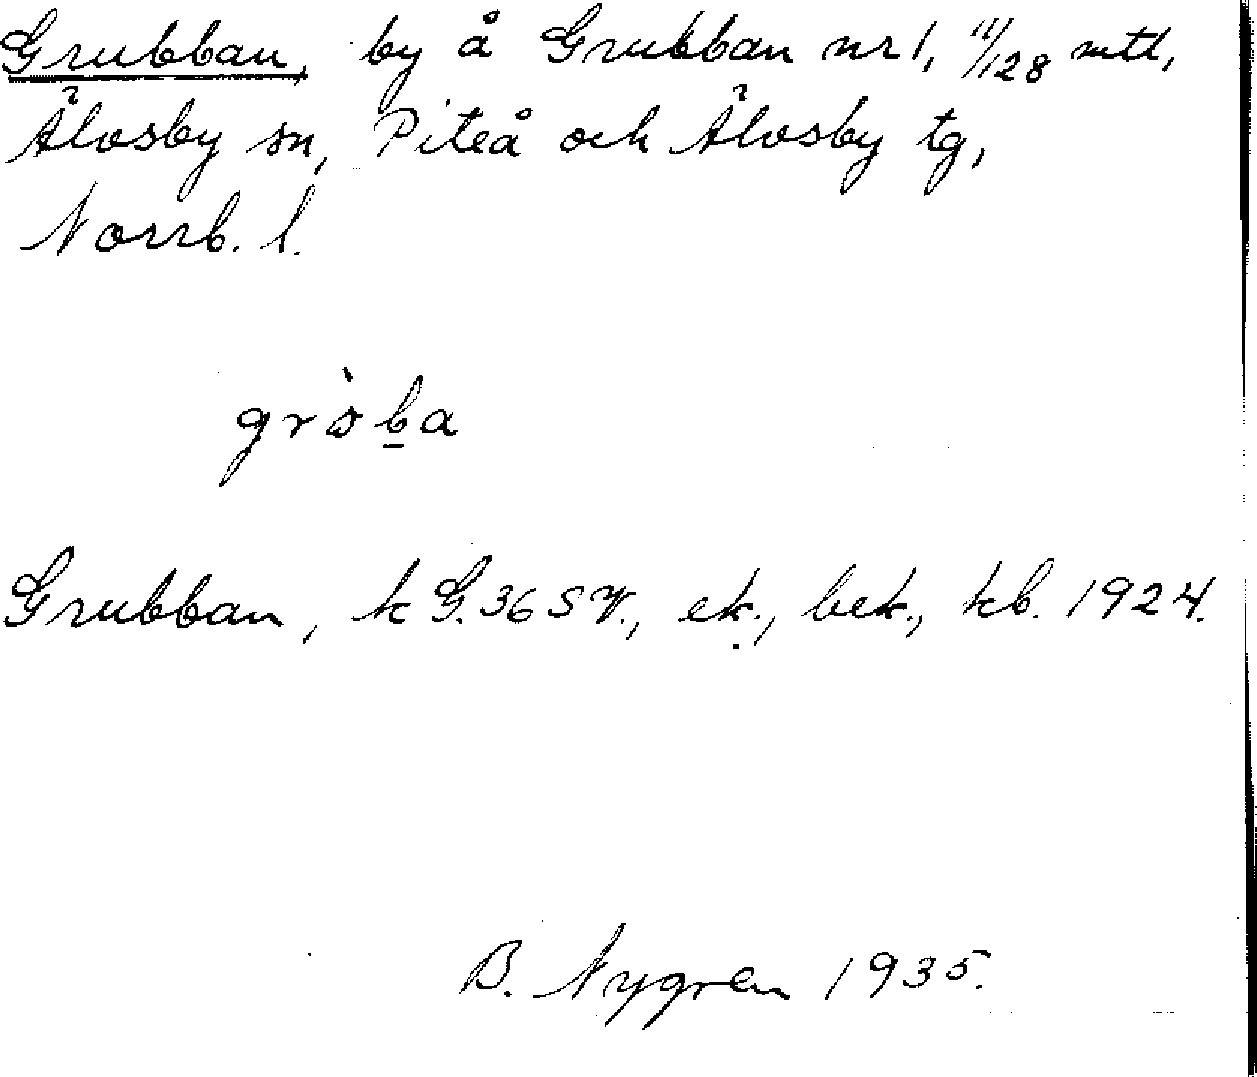 Grubban, by å Grubban nr 1, 11/128 mtl,
Älvsby sn, Piteå och Älvsby tg,
Norrb. l.
grὸb̲a
Grubban, k G. 36 SV., ek., bek., kb. 1924.
B. Nygren 1935.